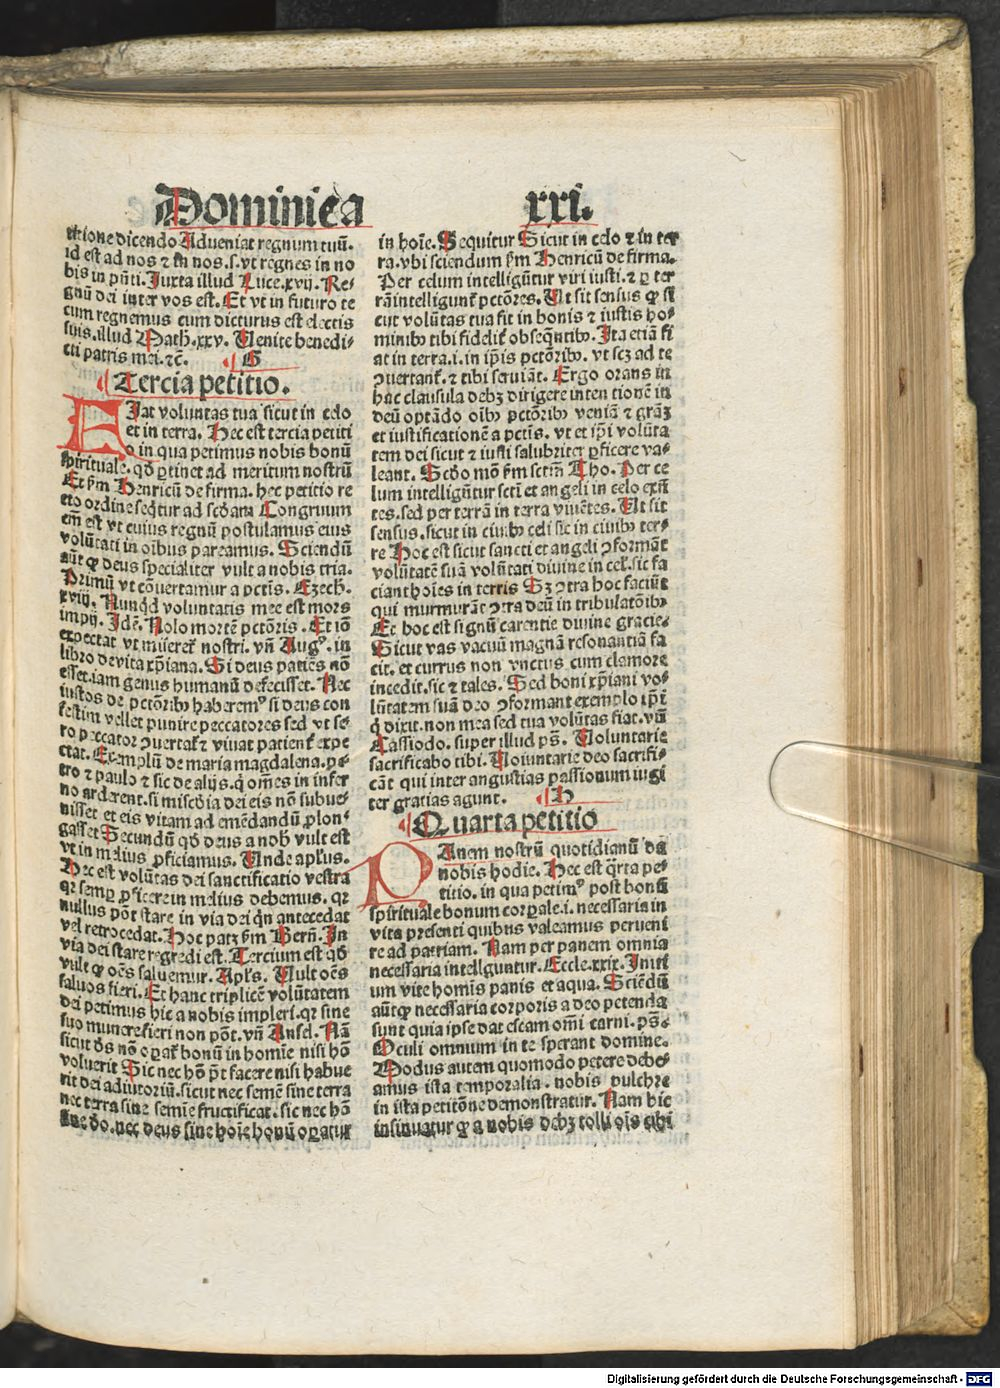 Dominica xxi.
titione dicendo Adueniat regnum tuū.
id est ad nos ⁊ in nos.s.vt regnes in no
bis in pn̄ti. Juxta illud Luce.xvij. Re⸗
gnū dei inter vos est. Et vt in futuro te
cum regnemus cum dicturus est electis
suis.illud Math.xxv. Uenite benedi⸗
cti patris mei.⁊c̄. G
Tercia petitio.
FIat voluntas tua sicut in celo
et in terra. Hec est tercia petiti
o in qua petimus nobis bonū
spirituale.qđ ꝑtinet ad meritum nostrū
Et ẜm Henricū de firma. hec petitio re
cto ordine seqtur ad scđam Congruum
em̄ est vt cuius regnū postulamus eius
volūtati in oībus pareamus. Sciendū
aūt ꝙ deus specialiter vult a nobis tria.
Primū vt cōuertamur a pctīs. Ezech.
xviij. Nunqd voluntatis mee est mors
impij. Idē. Nolo mortē pctōris. Et iō
expectat vt misereꝶ nostri. vn̄ Augꝰ. in
libro de vita xp̄iana. Si deus patiēs nō
esset.iam genus humanū defecisset. Nec
iustos de pctōribꝫ haberemꝰ si deus con
festim vellet punire peccatores sed vt se⸗
ro peccator ꝯuertaꝶ ⁊ viuat patienꝶ expe
ctat. Exemplū de maria magdalena.pe⸗
tro ⁊ paulo ⁊ sic de alijs.q̄ om̄es in infer
no arderent.si misc̄dia dei eis nō subue⸗
nisset et eis vitam ad emēdandū ꝓlon⸗
gasset Secundū qđ deus a nob̄ vult est
vt in melius ꝓficiamus. Unde apl̄us.
Hec est volūtas dei sanctificatio vestra
qꝛ semꝑ ꝓficere in melius debemus. qꝛ
nullus pōt stare in via dei qn̄ antecedat
vel retrocedat. Hoc patꝫ ẜm Bern̄. In
via dei stare regredi est. Tercium est qđ
vult ꝙ oēs saluemur. Apl̄s. Uult oēs
saluos fieri. Et hanc triplicē volūtatem
dei petimus hic a nobis impleri.qꝛ sine
suo munere fieri non pōt. vn̄ Ansel. Nā
sicut dṡ nō oꝑaꝶ bonū in homīe nisi hō
voluerit Sic nec hō pt̄ facere nisi habue
rit dei adiutoriū.sicut nec semē sine terra
nec terra sine semīe fructificat.sic nec hō
sine do.nec deus sine hoīe bonū oꝑatur
in hoīe. Sequitur Sicut in celo ⁊ in ter
ra.vbi sciendum ẜm Henricū de firma.
Per celum intelligūtur viri iusti.⁊ ꝑ ter
rā intelligunꝶ pctōres. Ut sit sensus ꝙ si
cut volūtas tua fit in bonis ⁊ iustis ho⸗
minibꝫ tibi fideliꝶ obseqntibꝫ. Ita etiā fi
at in terra.i.in ip̄is pctōribꝫ. vt scꝫ ad te
ꝯuertanꝶ. ⁊ tibi seruiāt. Ergo orans in
hac clausula debꝫ dirigere intentionē in
deū optādo oībꝫ pctōribꝫ veniā ⁊ grāꝫ
et iustificationē a pctīs. vt et ip̄i volūta
tem dei sicut ⁊ iusti salubriter ꝑficere va⸗
leant. Scđo mō ẜm sctm̄ Tho. Per ce
lum intelligūtur scti et angeli in celo exn̄
tes.sed per terrā in terra viuētes. Ut sit
sensus.sicut in ciuibꝫ celi sic in ciuibꝫ ter⸗
re Hoc est sicut sancti et angeli ꝯformāt
volūtatē suā volūtati diuine in cel̄.sic fa
ciant hoīes in terris Sꝫ ꝯtra hoc faciūt
qui murmurāt ꝯtra deū in tribulatōibꝫ
Et hoc est signū carentie diuine gracie⸗
Sicut vas vacuū magnā resonantiā fa
cit.et currus non vnctus cum clamore
incedit.sic ⁊ tales. Sed boni xp̄iani vo⸗
lūtatem suā deo ꝯformant exemplo ip̄ī
q̄ dixit.non mea sed tua volūtas fiat.vn̄
Cassiodo. super illud ps̄. Uoluntarie
sacrificabo tibi. Uoluntarie deo sacrifi⸗
cāt qui inter angustias passionum iugi
ter gratias agunt. H
Quarta petitio
PAnem nostrū quotidianū da
nobis hodie. Hec est qr̄ta pe⸗
titio.in qua petimꝰ post bonū
spirituale bonum corꝑale.i.necessaria in
vita presenti quibus valeamus perueni
re ad patriam. Nam per panem omnia
necessaria intellguntur. Eccle.xxix. Initi
um vite homīs panis et aqua. Sciēdū
aūt ꝙ necessaria corporis a deo petenda
sunt quia ipse dat escam om̄i carni.ps̄.
Oculi omnium in te sperant domine.
Modus autem quomodo petere debe⸗
amus ista temporalia.nobis pulchre
in ista petitōne demonstratur. Nam hic
insinuatur ꝙ a nobis debꝫ tolli oīs cibi
Digitalisierung gefördert durch die Deutsche Forschungsgemeinschaft - DFG